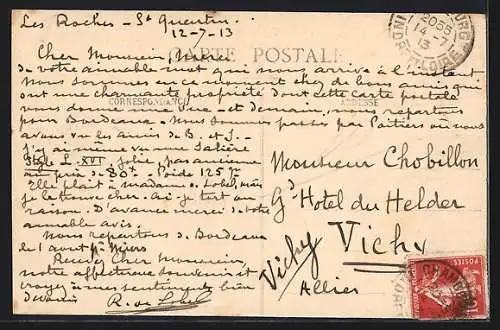 Les Roches - St Quentin
12-7-13
CARTE POSTALE
Cher Monsieur, Merci
de votre aimable mot qui nous arrive à l'instant
Nous sommes en ce moment chez de bons amis qui
ont une charmante propriété dont cette carte postale
vous donne une
CORRESPONDANCE
ADRESSE
et demain, nous repartons
pour Bordeaux. Nous sommes passés par Poitiers où nous
avons vu les amis de B. et J.
J'y ai même vu une Salière
Style L. XVI jolie, pas ancienne
au prix de 80f. Poids 125 gr
Elle plaît à madame de Lobel, mais
je la trouve cher. Ai-je tort ou
raison. D'avance merci de votre
aimable avis.
Nous repartons de Bordeaux
le 1 août
Recevez Cher Monsieur,
notre affectueux souvenir et
croyez à mes sentiments bien
dévoués
R. de Lobel
Monsieur Chobillon
Gd Hotel du Helder
Vichy
Vichy
Allier
14-7
13
LOIRE
POSTES